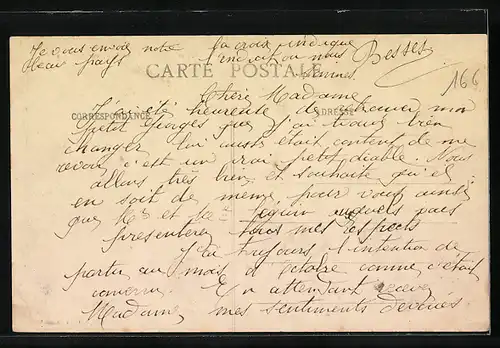 Je vous envoie notre la croix indique
beau pays l'endroit ou nous Besses
CARTE POSTALE sommes 166
Chère Madame
CORRESPONDANCE ADRESSE
J'ai été heureuse de retrouver mon
petit Georges que j'ai trouvé bien
changer lui aussi était content de me
revoir c'est un vrai petit diable. Nous
allons très bien et souhaite qu'il
en soit de meme pour vous ainsi
que Mr et Me auquels vous
presenterez tous mes respects
J'ai toujours l'intention de
partir au mois d'octobre comme c'était
convenu. En attendant recevez
Madame mes sentiments dévoués